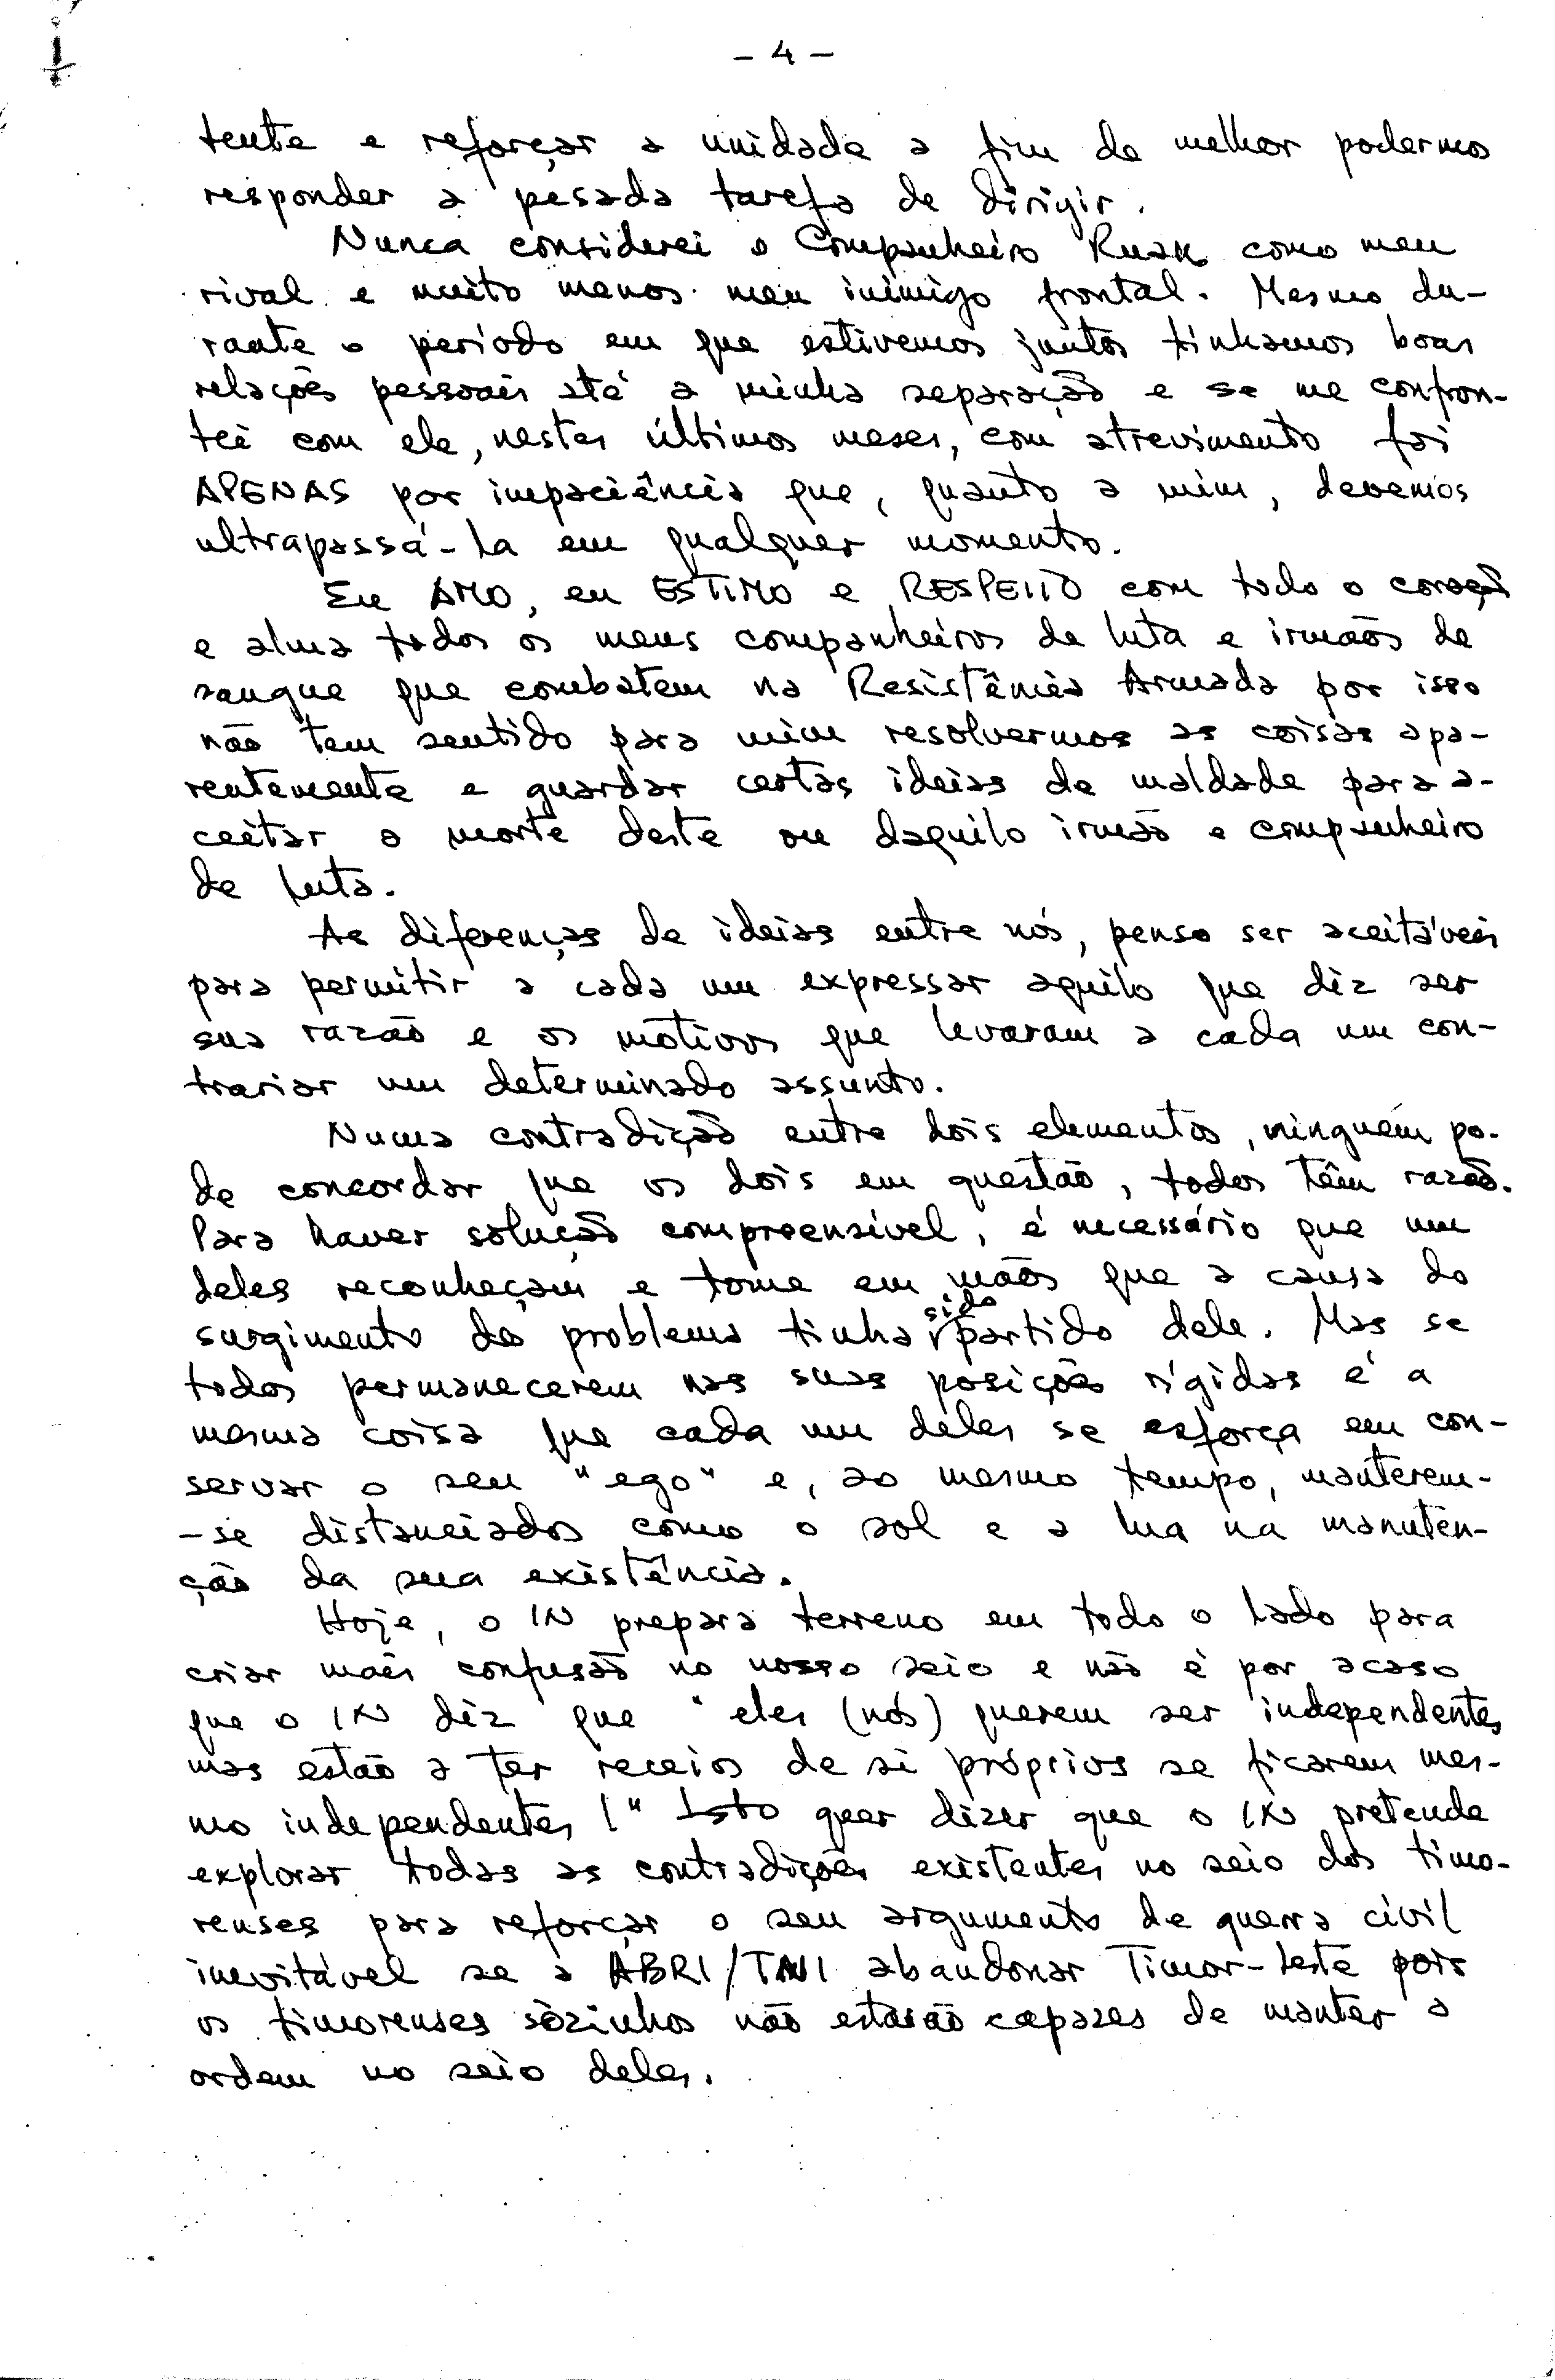 - 4 -
tente e reforçar a unidade a fim de melhor podermos
responder a pesada tarefa de dirigir.
Nunca considerei o Companheiro Ruak como meu
rival e muito menos meu inimigo frontal. Mesmo du-
rante o período em que estivemos juntos tínhamos boas
relações pessoais até a minha separação e se me confron-
tei com ele, nestes últimos meses, com atrevimento foi
APENAS por impaciência que, quanto a mim, devemos
ultrapassá-la em qualquer momento.
Eu AMO, eu ESTIMO e RESPEITO com todo o coração
e alma todos os meus companheiros de luta e irmãos de
sangue que combatem na Resistência Armada por isso
não tem sentido para mim resolvermos as coisas apa-
rentemente e guardar certas ideias de maldade para a-
ceitar a morte deste ou daquilo irmão e companheiro
de luta.
As diferenças de ideias entre nós, penso ser aceitáveis
para permitir a cada um expressar aquilo que diz ser
sua razão e os motivos que levaram a cada um con-
trariar um determinado assunto.
Numa contradição entre dois elementos, ninguém po-
de concordar que os dois em questão, todos têm razão.
Para haver solução compreensível, é necessário que um
deles reconheçam e tome em mãos que a causa do
surgimento do problema tinha sido partido dele. Mas se
todos permanecerem nas suas posições rígidas é a
mesma coisa que cada um deles se esforça em con-
servar o seu "ego" e, ao mesmo tempo, manterem-
-se distanciados como o sol e a lua na manuten-
ção da sua existência.
Hoje, o IN prepara terreno em todo o lado para
criar mais confusão no nosso seio e não é por acaso
que o IN diz que "eles (nós) querem ser independentes
mas estão a ter receios de si próprios se ficarem mes-
mo independentes!" Isto quer dizer que o IN pretende
explorar todas as contradições existentes no seio dos timo-
renses para reforçar o seu argumento de guerra civil
inevitável se a ABRI/TNI abandonar Timor-Leste pois
os timorenses sòzinhos não estarão capazes de manter a
ordem no seio deles.